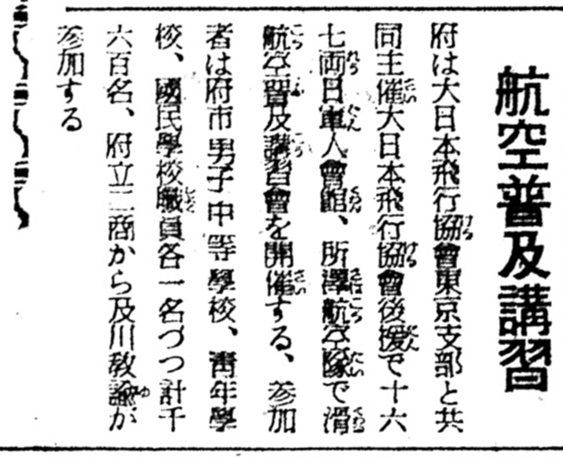 航空普及講習
府は大日本飛行協會東京支部と共
同主催大日本飛行協會後援で十六
七両日軍人會館、所澤航空隊で滑
航空普及講習會を開催する、参加
者は府市男子中等學校、靑年學
校、國民學校職員各一名づつ計千
六百名、府立二商から及川教諭が
参加する